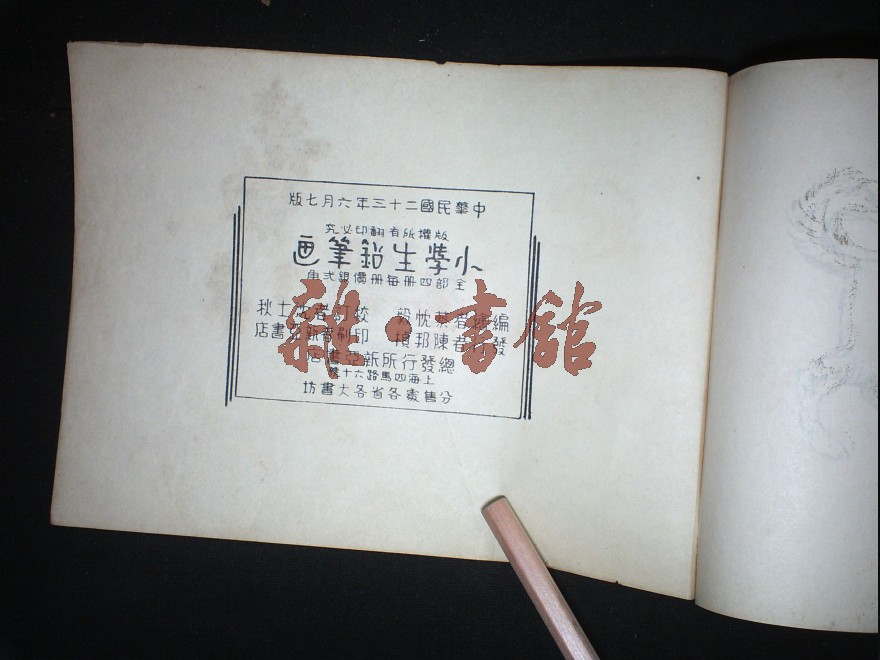 中華民國二十三年六月七版
版權所有翻印必究
小學生鉛筆画
全部四冊每冊價銀弍
編繪者蔡忱 校訂者沈士秋
發行者陳邦楨 印刷者新亞書店
總發行所新亞書店
上海四馬路六十號
分售處各省各大書坊
雜·書館